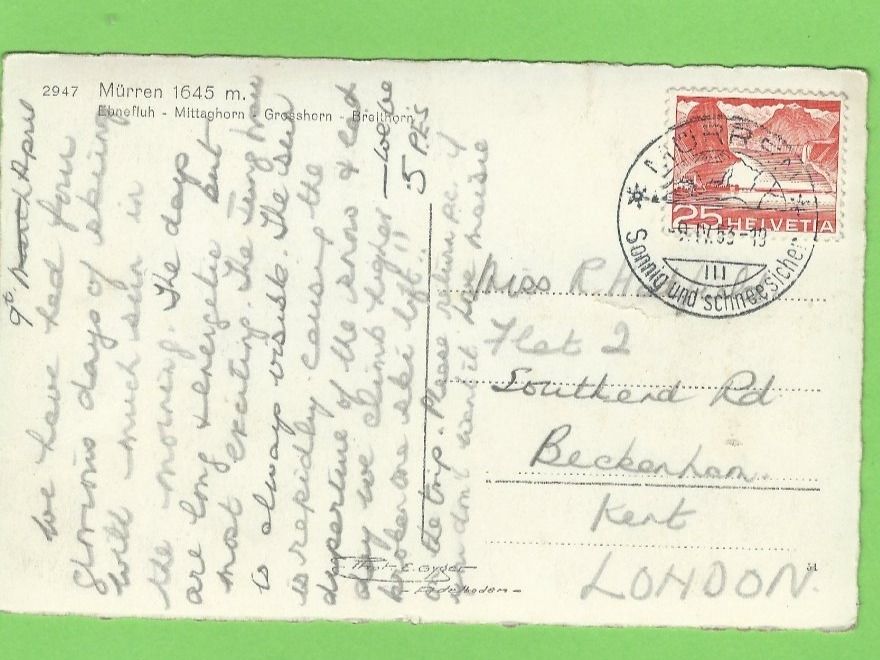 2947 Mürren 1645 m.
Ebnefluh - Mittaghorn - Grosshorn - Breithorn
9th April
We have had four
glorious days of skiing
with much sun in
the morning. The days
are long & energetic but
most exciting. The Jungfrau
is always visible. The sun
is rapidly causing the
departure of the snow & each
day we climb higher - We've
broken one ski lift!! 5 PES
on the trip. Please return pc. if
you don't want it. love Maisie
MÜRREN
25 HELVETIA
-9.IV.53-19
III
Sonnig und schneesicher
Miss R
Flat 2
Southend Rd
Beckenham
Kent
LONDON.
Phot. E. Gyger
Adelboden
51